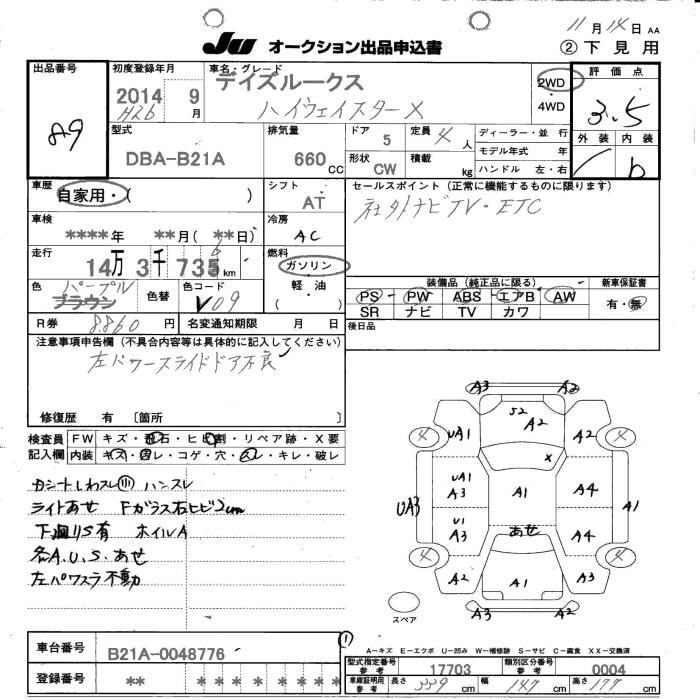 11月14日 AA
JU オークション出品申込書
② 下見用
出品番号
89
初度登録年月
2014 9
H26 月
車名・グレード
デイズルークス
ハイウェイスターX
2WD
4WD
評価点
3.5
外装 内装
b
型式
DBA-B21A
排気量
660 CC
ドア 5
定員 4 人
形状 CW
積載 kg
ディーラー・並行
モデル年式 年
ハンドル 左・右
車歴
自家用・( )
シフト
AT
セールスポイント(正常に機能するものに限ります)
社外ナビTV・ETC
車検
****年 **月(**日)
冷房
AC
走行
14万3千735km
6
燃料
ガソリン
軽・油
( )
色
パープル
ブラウン
色替
色コード
V09
装備品(純正品に限る)
PS PW ABS エアB AW
SR ナビ TV カワ
新車保証書
有・無
R券 8.860円
名変通知期限 月 日
後日品
注意事項申告欄(不具合内容等は具体的に記入してください)
左パワースライドドア不良
修復歴 有 〔箇所 〕
検査員
記入欄
FW キズ・飛石・ヒビ割・リペア跡・X要
内装 キズ・ヨゴレ・コゲ・穴・スレ・キレ・破レ
カシートしわスレ㊥ ハンスレ
ライトあせ Fガラス右ヒビ2cm
下廻りS有 ホイルA
各A.U.S.あせ
左パワスラ不動
A3 A2
S2
A2
4 UA1 A2 4
X
UA1
A3 A1 A4
UA3 A1
U1
A3 あせ A4
4 4
A2 A1 A3
A3 A2
スペア
A-キズ E-エクボ U-凹み W-補修跡 S-サビ C-腐食 XX-交換済
①
車台番号 B21A-0048776
型式指定番号 参考 17703
類別区分番号 参考 0004
登録番号 ** * * * * * * *
車庫証明用 参考 長さ 339cm 幅 147cm 高さ 177cm